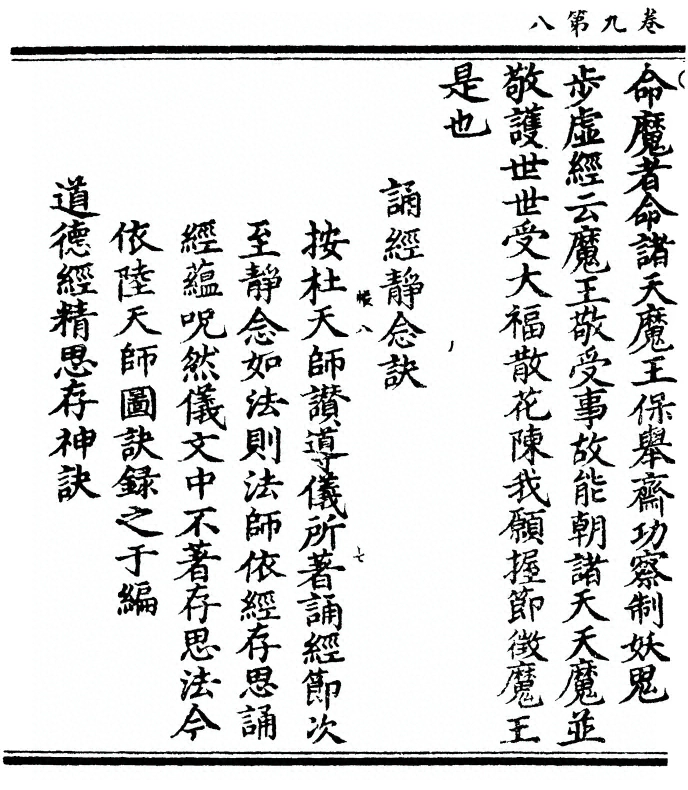 卷九第八
命魔者命諸天魔王保舉齋功察制妖鬼
步虛經云魔王敬受事故能朝諸天天魔並
敬護世世受大福散花陳我願握節徵魔王
是也
誦經靜念訣
帳八
按杜天師讃導儀所著誦經節次
七
至靜念如法則法師依經存思誦
經蘊呪然儀文中不著存思法今
依陸天師圖訣録之于編
道德經精思存神訣